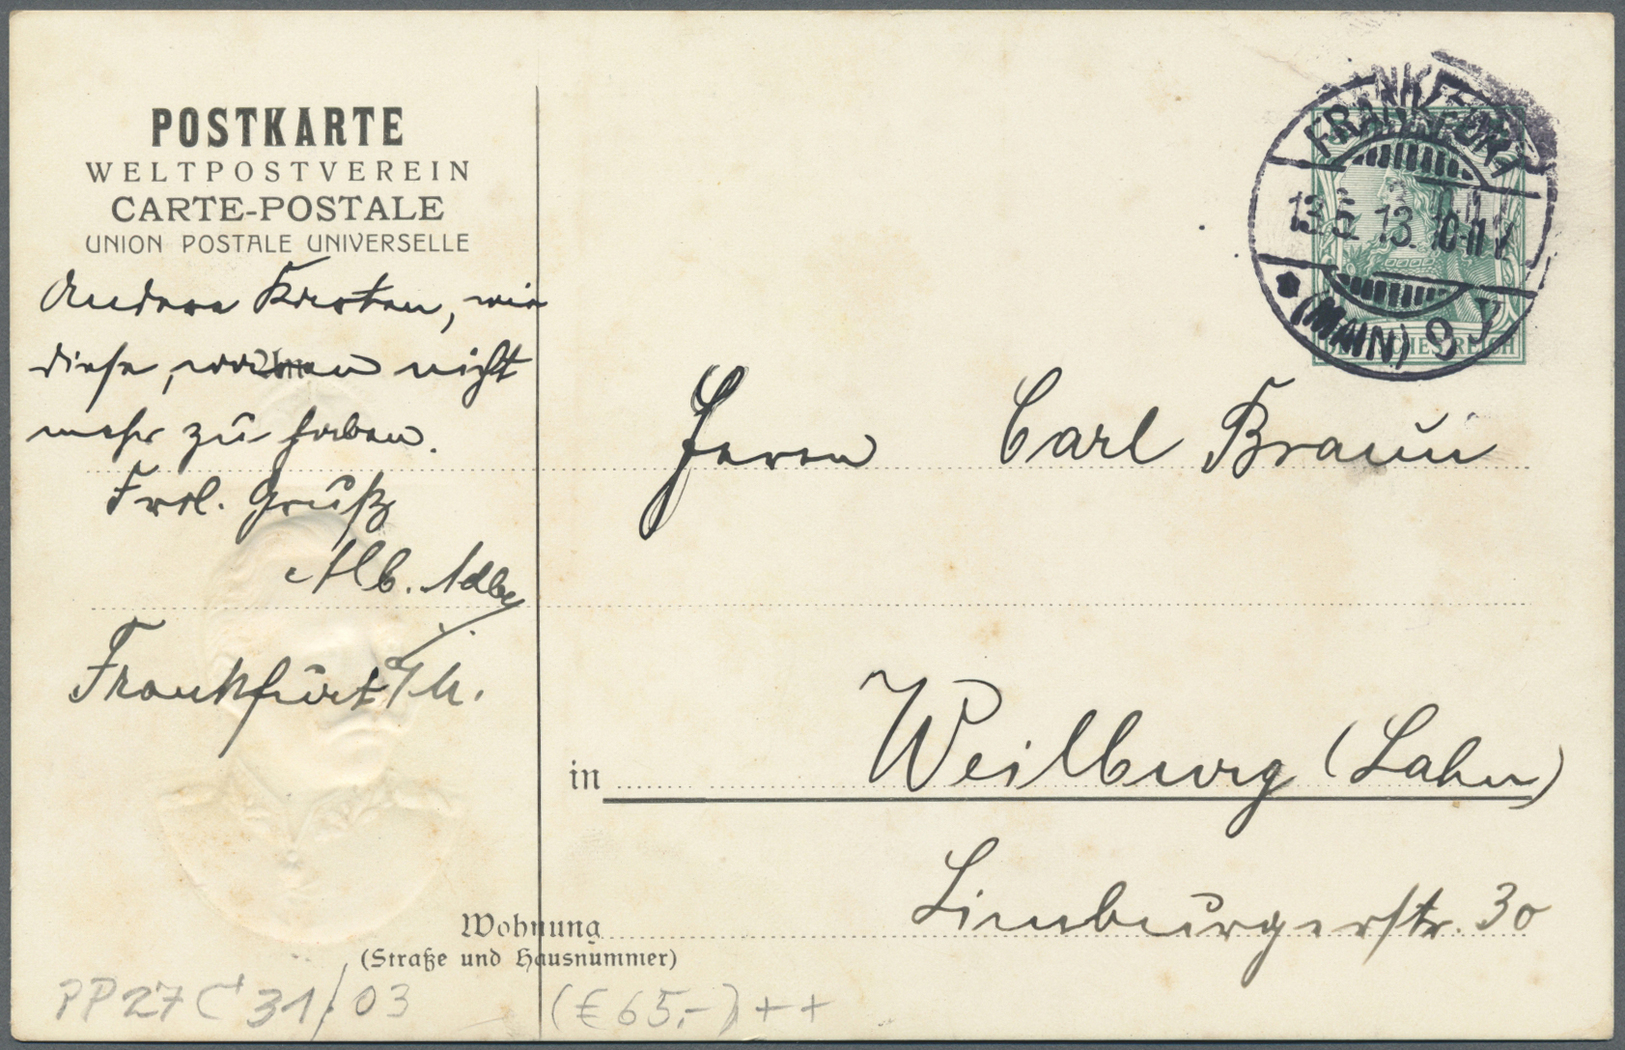 POSTKARTE
WELTPOSTVEREIN
CARTE-POSTALE
UNION POSTALE UNIVERSELLE
Andere Karten, wie
diese, waren nicht
mehr zu haben.
Frdl. Gruß
Alb. Adler
Frankfurt a/M.
FRANKFURT
13.5.13. 10-11 V
* (MAIN) 9
REICH
Herrn Carl Braun
in Weilburg (Lahn)
Limburgerstr. 30
Wohnung
(Straße und Hausnummer)
PP27 C 31/03
(€ 65,-) ++